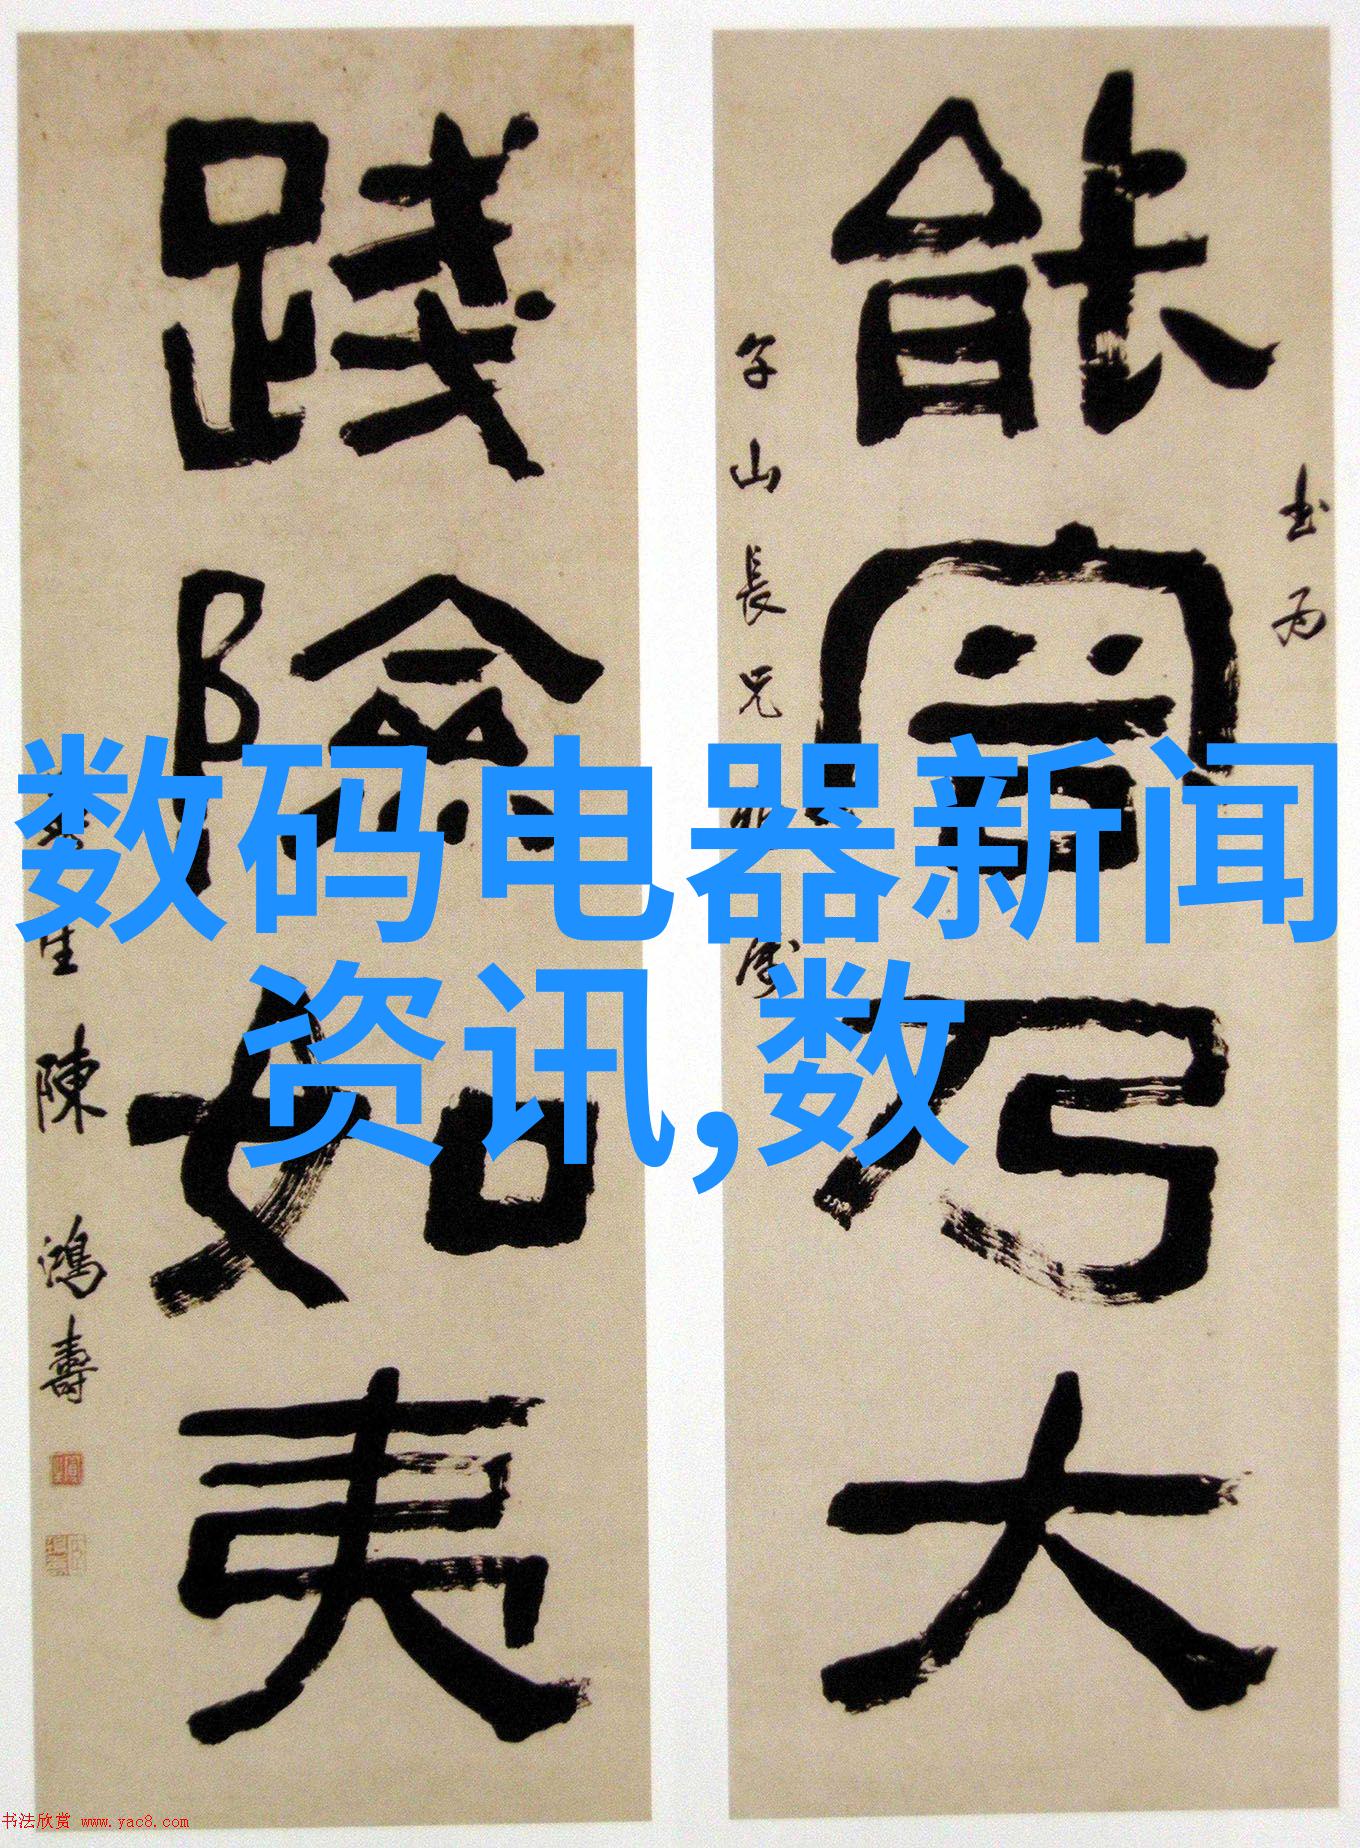 书为
能容乃大
山長兄
踐險如夷
陳鴻壽
数码电器新闻
资讯,数
书法欣赏 www.yac8.com